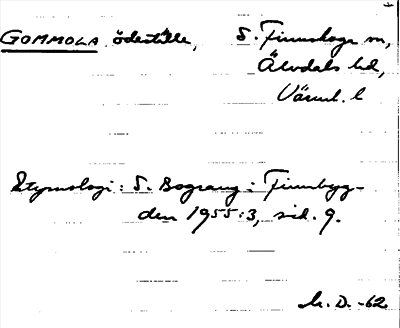 GOMMOLA ödeställe, S. Finnskoga sn,
Älvdals hd,
Värml. l
Etymologi: S. Bograng i Finnbyg-
den 1955:3, sid. 9.
M. D. -62